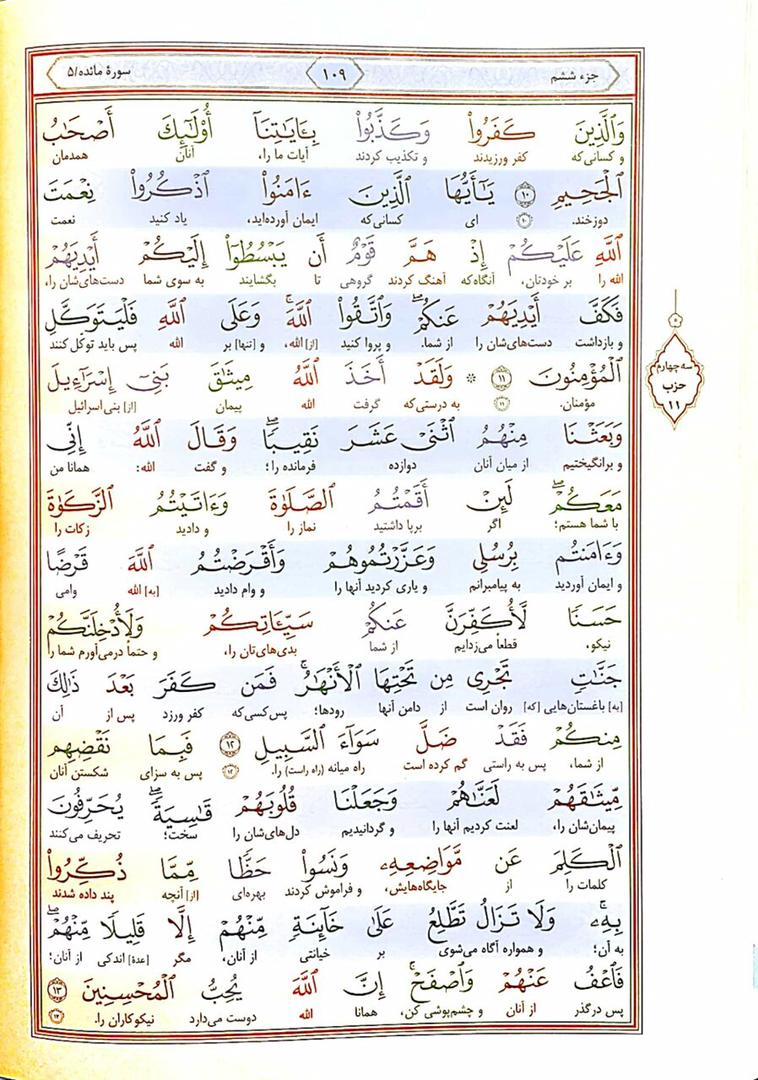 جزء ششم ۱۰۹ سورهٔ مائده/۵
وَٱلَّذِينَ كَفَرُوا۟ وَكَذَّبُوا۟ بِـَٔايَـٰتِنَآ أُو۟لَـٰٓئِكَ أَصْحَـٰبُ
و کسانی‌که کفر ورزیدند و تکذیب کردند آیات ما را، آنان همدمان
ٱلْجَحِيمِ ۱۰ يَـٰٓأَيُّهَا ٱلَّذِينَ ءَامَنُوا۟ ٱذْكُرُوا۟ نِعْمَتَ
دوزخند. ۱۰ ای کسانی‌که ایمان آورده‌اید، یاد کنید نعمت
ٱللَّهِ عَلَيْكُمْ إِذْ هَمَّ قَوْمٌ أَن يَبْسُطُوٓا۟ إِلَيْكُمْ أَيْدِيَهُمْ
الله را بر خودتان، آنگاه‌که آهنگ کردند گروهی تا بگشایند به سوی شما دست‌های‌شان را،
فَكَفَّ أَيْدِيَهُمْ عَنكُمْ ۖ وَٱتَّقُوا۟ ٱللَّهَ ۚ وَعَلَى ٱللَّهِ فَلْيَتَوَكَّلِ
و بازداشت دست‌های‌شان را از شما. و پروا کنید [از] الله، و [تنها] بر الله پس باید توکّل کنند
ٱلْمُؤْمِنُونَ ۱۱ * وَلَقَدْ أَخَذَ ٱللَّهُ مِيثَـٰقَ بَنِىٓ إِسْرَٰٓءِيلَ
مؤمنان. ۱۱ به درستی‌که گرفت الله پیمان [از] بنی‌اسرائیل
وَبَعَثْنَا مِنْهُمُ ٱثْنَىْ عَشَرَ نَقِيبًا ۖ وَقَالَ ٱللَّهُ إِنِّى
و برانگیختیم از میان آنان دوازده فرمانده را؛ و گفت الله: همانا من
مَعَكُمْ ۖ لَئِنْ أَقَمْتُمُ ٱلصَّلَوٰةَ وَءَاتَيْتُمُ ٱلزَّكَوٰةَ
با شما هستم؛ اگر برپا داشتید نماز را و دادید زکات را
وَءَامَنتُم بِرُسُلِى وَعَزَّرْتُمُوهُمْ وَأَقْرَضْتُمُ ٱللَّهَ قَرْضًا
و ایمان آوردید به پیامبرانم و یاری کردید آنها را و وام دادید [به] الله وامی
حَسَنًا لَّأُكَفِّرَنَّ عَنكُمْ سَيِّـَٔاتِكُمْ وَلَأُدْخِلَنَّكُمْ
نیکو، قطعاً می‌زدایم از شما بدی‌های‌تان را، و حتماً درمی‌آورم شما را
جَنَّـٰتٍ تَجْرِى مِن تَحْتِهَا ٱلْأَنْهَـٰرُ ۚ فَمَن كَفَرَ بَعْدَ ذَٰلِكَ
[به] باغستان‌هایی [که] روان است از دامن آنها رودها؛ پس‌کسی‌که کفر ورزد پس از آن
مِنكُمْ فَقَدْ ضَلَّ سَوَآءَ ٱلسَّبِيلِ ۱۲ فَبِمَا نَقْضِهِم
از شما، پس به راستی گم کرده است راه میانه (راه راست) را. ۱۲ پس به سزای شکستن آنان
مِّيثَـٰقَهُمْ لَعَنَّـٰهُمْ وَجَعَلْنَا قُلُوبَهُمْ قَـٰسِيَةً ۖ يُحَرِّفُونَ
پیمان‌شان را، لعنت کردیم آنها را و گردانیدیم دل‌های‌شان را سخت؛ تحریف می‌کنند
ٱلْكَلِمَ عَن مَّوَاضِعِهِۦ وَنَسُوا۟ حَظًّا مِّمَّا ذُكِّرُوا۟
کلمات را از جایگاه‌هایش، و فراموش کردند بهره‌ای [از] آنچه پند داده شدند
بِهِۦ ۚ وَلَا تَزَالُ تَطَّلِعُ عَلَىٰ خَآئِنَةٍ مِّنْهُمْ إِلَّا قَلِيلًا مِّنْهُمْ ۖ
به آن؛ و همواره آگاه می‌شوی بر خیانتی از آنان، مگر [عدهٔ] اندکی از آنان؛
فَٱعْفُ عَنْهُمْ وَٱصْفَحْ ۚ إِنَّ ٱللَّهَ يُحِبُّ ٱلْمُحْسِنِينَ ۱۳
پس درگذر از آنان و چشم‌پوشی کن، همانا الله دوست می‌دارد نیکوکاران را. ۱۳
سه چهارم
حزب
۱۱